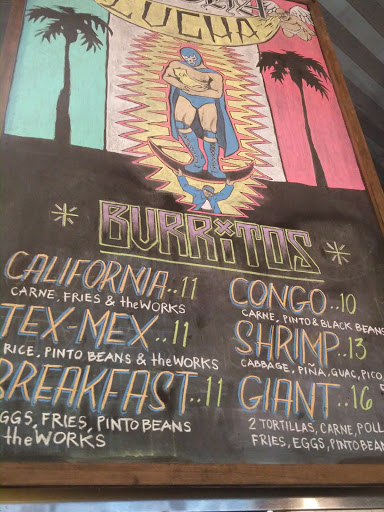 LUCHA
BURRITOS
CALIFORNIA..11
CARNE, FRIES & theWORKS
TEX-MEX..11
RICE, PINTO BEANS & theWORKS
BREAKFAST..11
EGGS, FRIES, PINTO BEANS
& theWORKS
CONGO..10
CARNE, PINTO & BLACK BEANS
SHRIMP..13
CABBAGE, PIÑA, GUAC, PICO,
GIANT..16
2 TORTILLAS, CARNE, POLL
FRIES, EGGS, PINTO BEAN